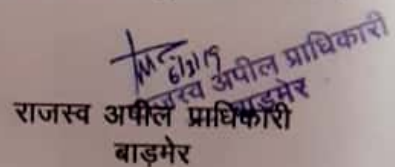 6/3/19
राजस्व अपील प्राधिकारी
बाड़मेर
राजस्व अपील प्राधिकारी
बाड़मेर